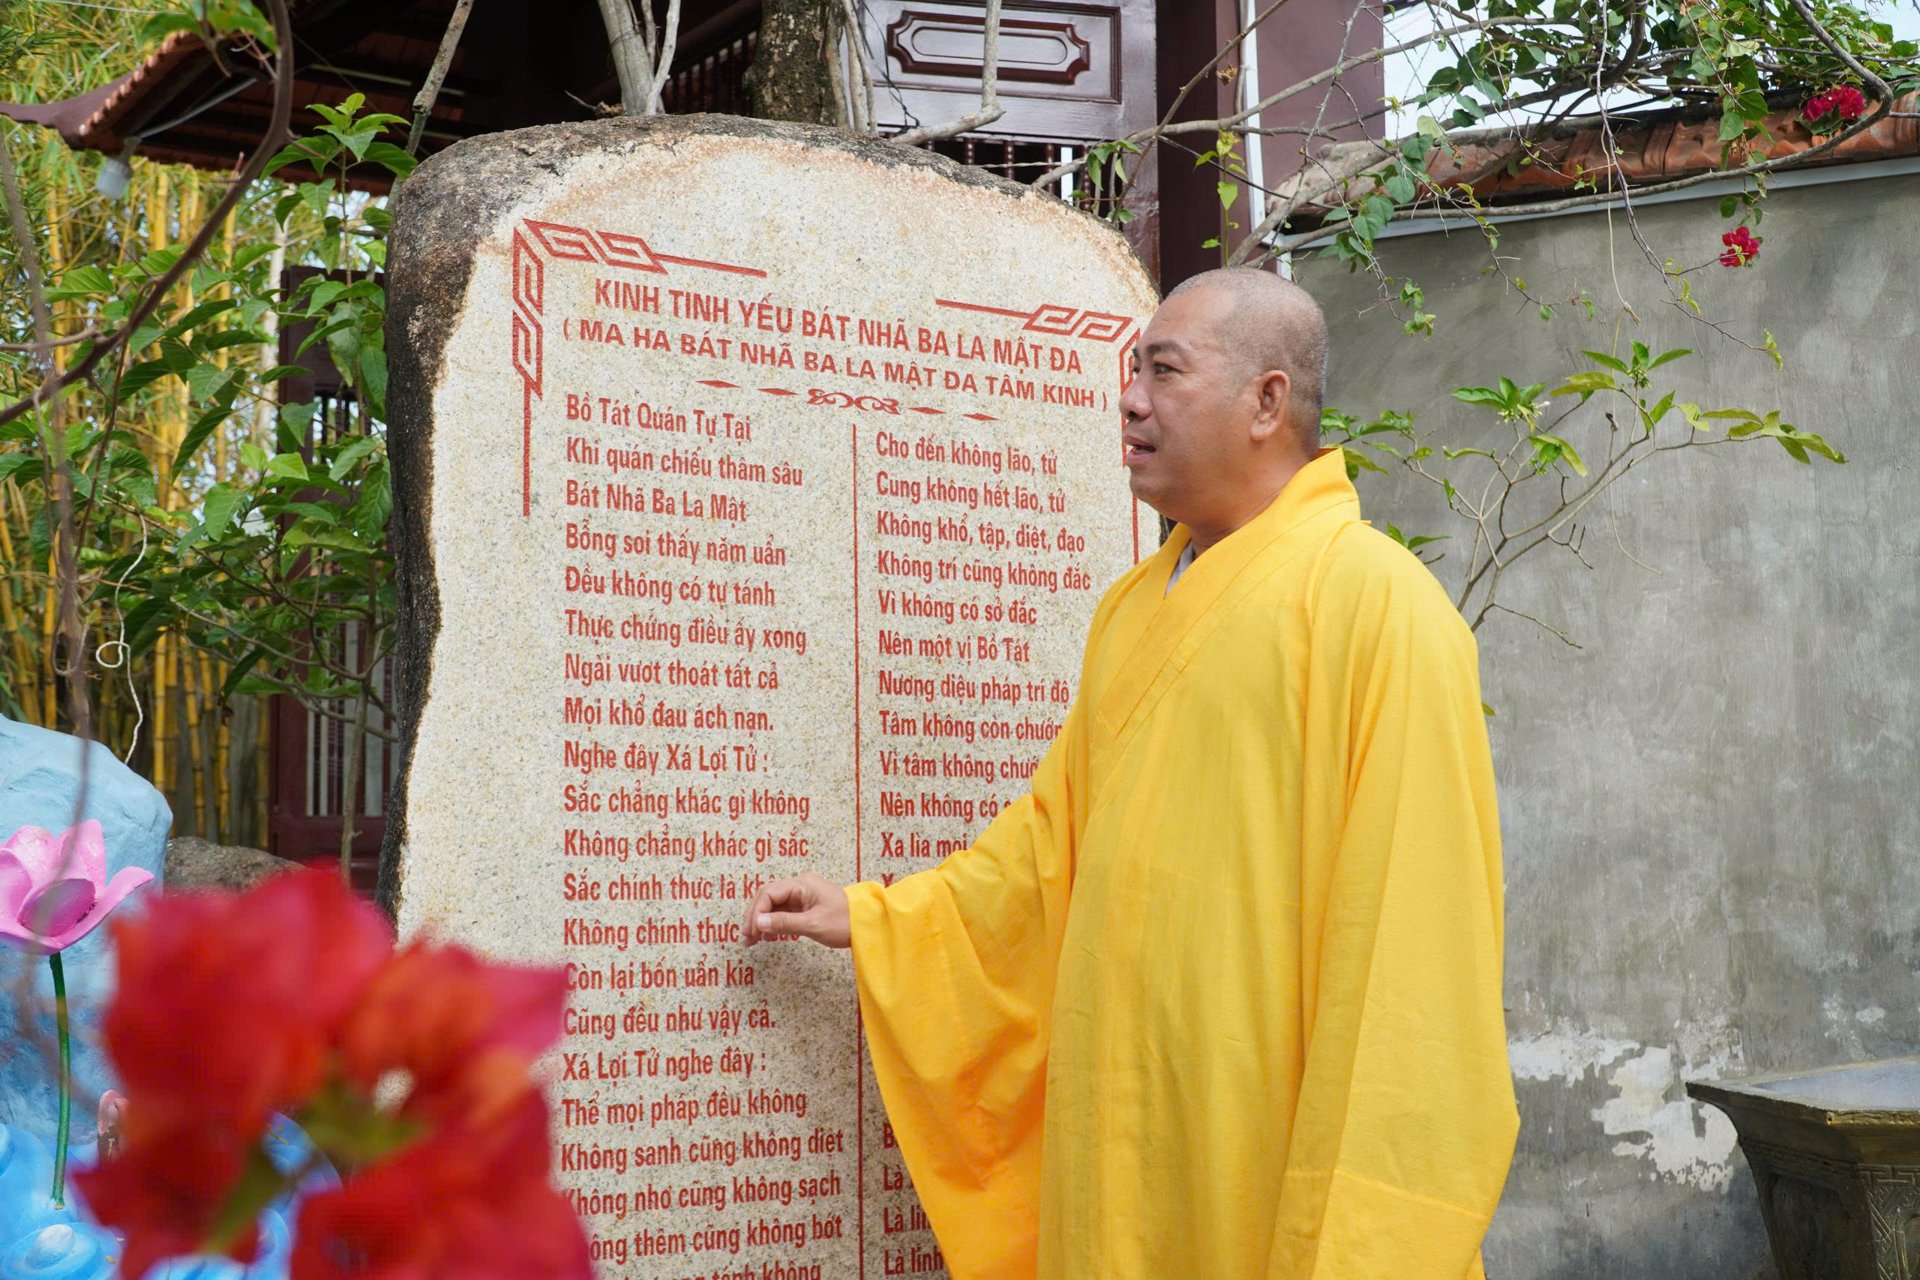 KINH TINH YẾU BÁT NHÃ BA LA MẬT ĐA
( MA HA BÁT NHÃ BA LA MẬT ĐA TÂM KINH )
Bồ Tát Quán Tự Tại
Khi quán chiếu thâm sâu
Bát Nhã Ba La Mật
Bỗng soi thấy năm uẩn
Đều không có tự tánh
Thực chứng điều ấy xong
Ngài vượt thoát tất cả
Mọi khổ đau ách nạn.
Nghe đây Xá Lợi Tử :
Sắc chẳng khác gì không
Không chẳng khác gì sắc
Sắc chính thực là
Không chính thực
Còn lại bốn uẩn kia
Cũng đều như vậy cả.
Xá Lợi Tử nghe đây :
Thể mọi pháp đều không
Không sanh cũng không diệt
Không nhơ cũng không sạch
thêm cũng không bớt
tánh không
Cho đến không lão, tử
Cung không hết lão, tử
Không khổ, tập, diệt, đạo
Không trí cũng không đắc
Vì không có sở đắc
Nên một vị Bồ Tát
Nương diệu pháp trí độ
Tâm không còn
Vì tâm không
Nên không có
Xa lìa mọi
Là
Là
Là linh